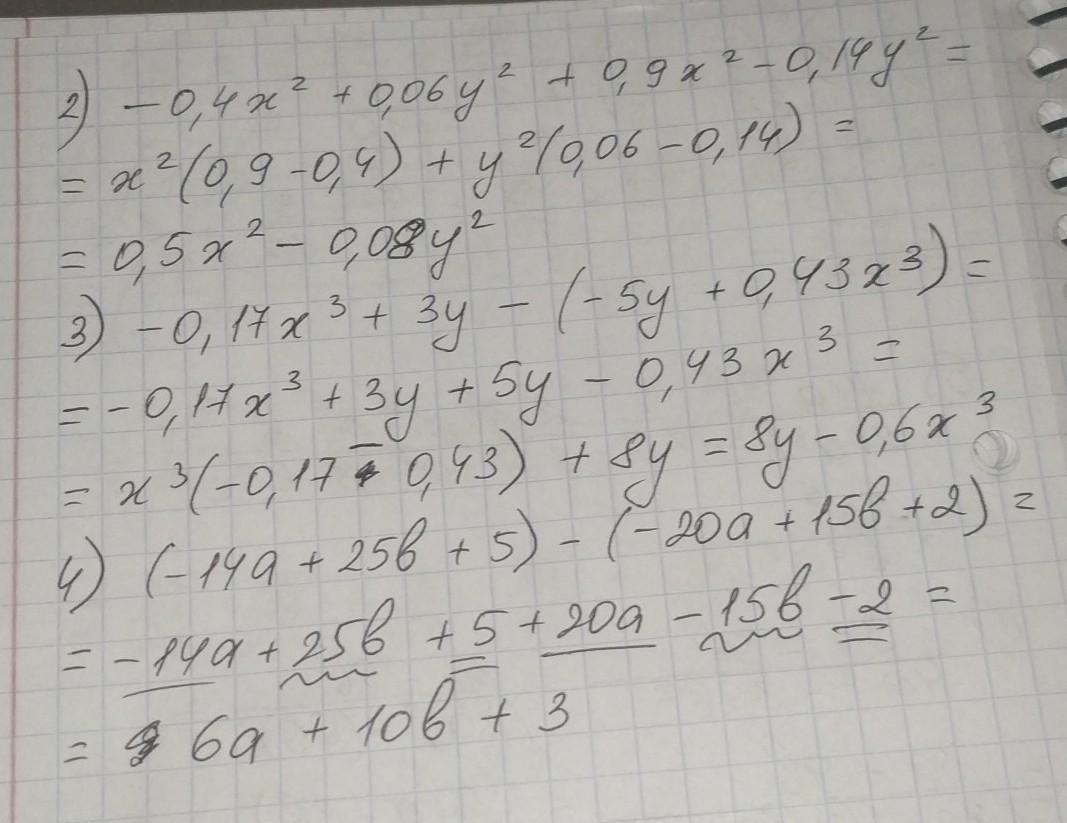 2) -0,4x² + 0,06y² + 0,9x² - 0,14y² =
= x²(0,9 - 0,4) + y²(0,06 - 0,14) =
= 0,5x² - 0,08y²
3) -0,17x³ + 3y - (-5y + 0,43x³) =
= -0,17x³ + 3y + 5y - 0,43x³ =
= x³(-0,17 - 0,43) + 8y = 8y - 0,6x³
4) (-14a + 25b + 5) - (-20a + 15b + 2) =
= -14a + 25b + 5 + 20a - 15b - 2 =
= 6a + 10b + 3